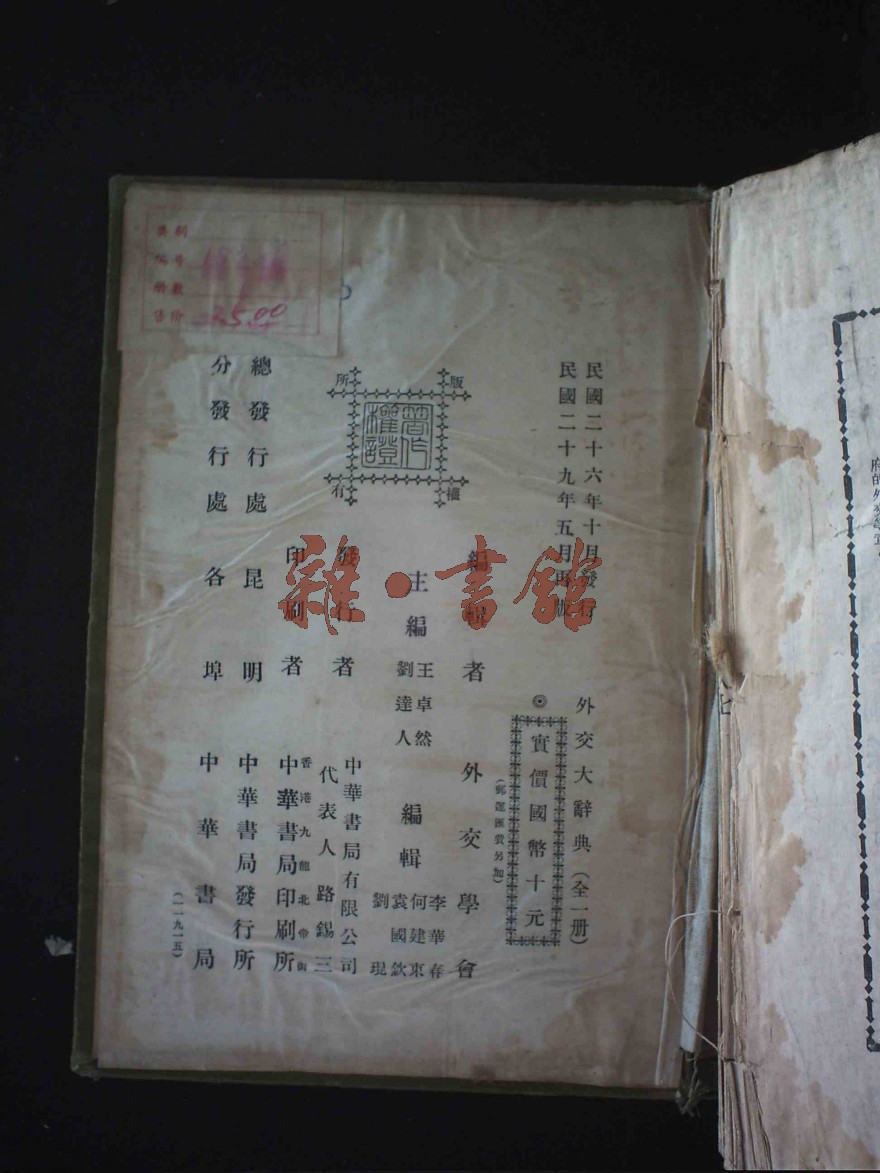 民國二十六年十月發行
民國二十九年五月再版
外交大辭典（全一册）
◎實價國幣十元
（郵運匯費另加）
編輯者 外交學會
主編 王卓然 劉達人
編輯 李華春 何建東 袁國欽 劉琨
版權所有
著作權證
發行者 中華書局有限公司
代表人 路錫三
印刷者 香港九龍北帝街
中華書局印刷所
總發行處 昆明 中華書局發行所
分發行處 各埠 中華書局
（一一九一五）
类别
编号
册數
售价 25.00
雜·書館